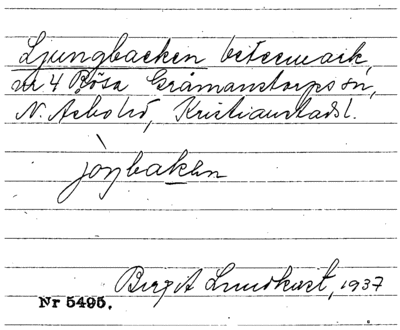 Ljungbacken betesmark,
nr 4 Bösa Gråmanstorps sn,
N. Åsbo hd, Kristianstads l.
jòŋbakən
Birgit Lundkvist, 1937
Nr 5495.